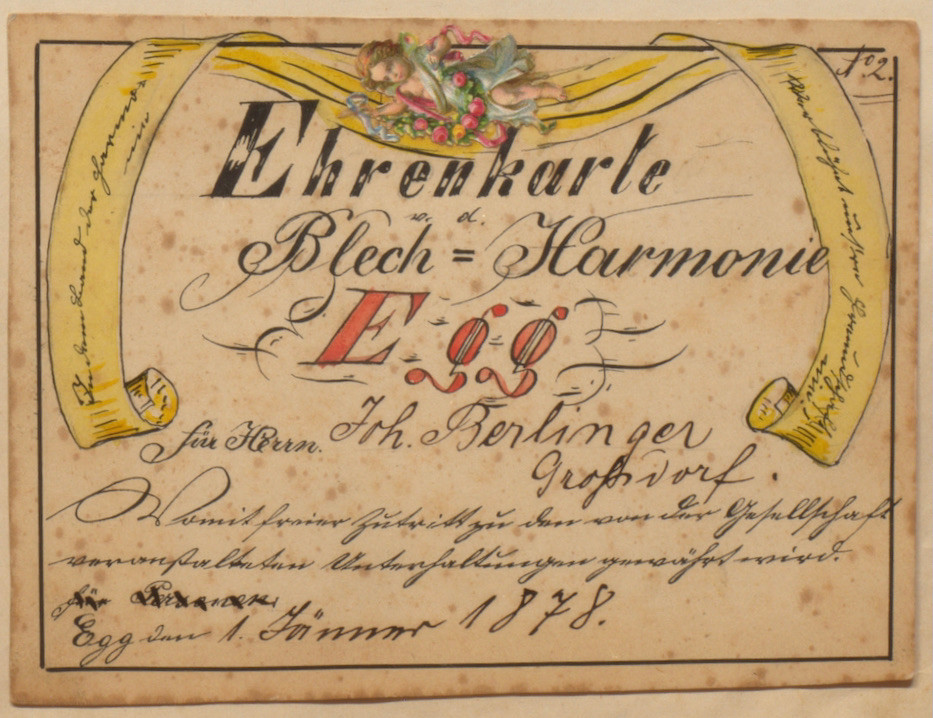 No 2.
In dem Bund der Harmonie
Ehrenkarte
v. d.
Blech = Harmonie
Egg
für Herrn. Joh. Berlinger
Großdorf.
Womit freier Zutritt zu den von der Gesellschaft
veranstalteten Unterhaltungen gewährt wird.
für Personen.
Egg den 1. Jänner 1878.